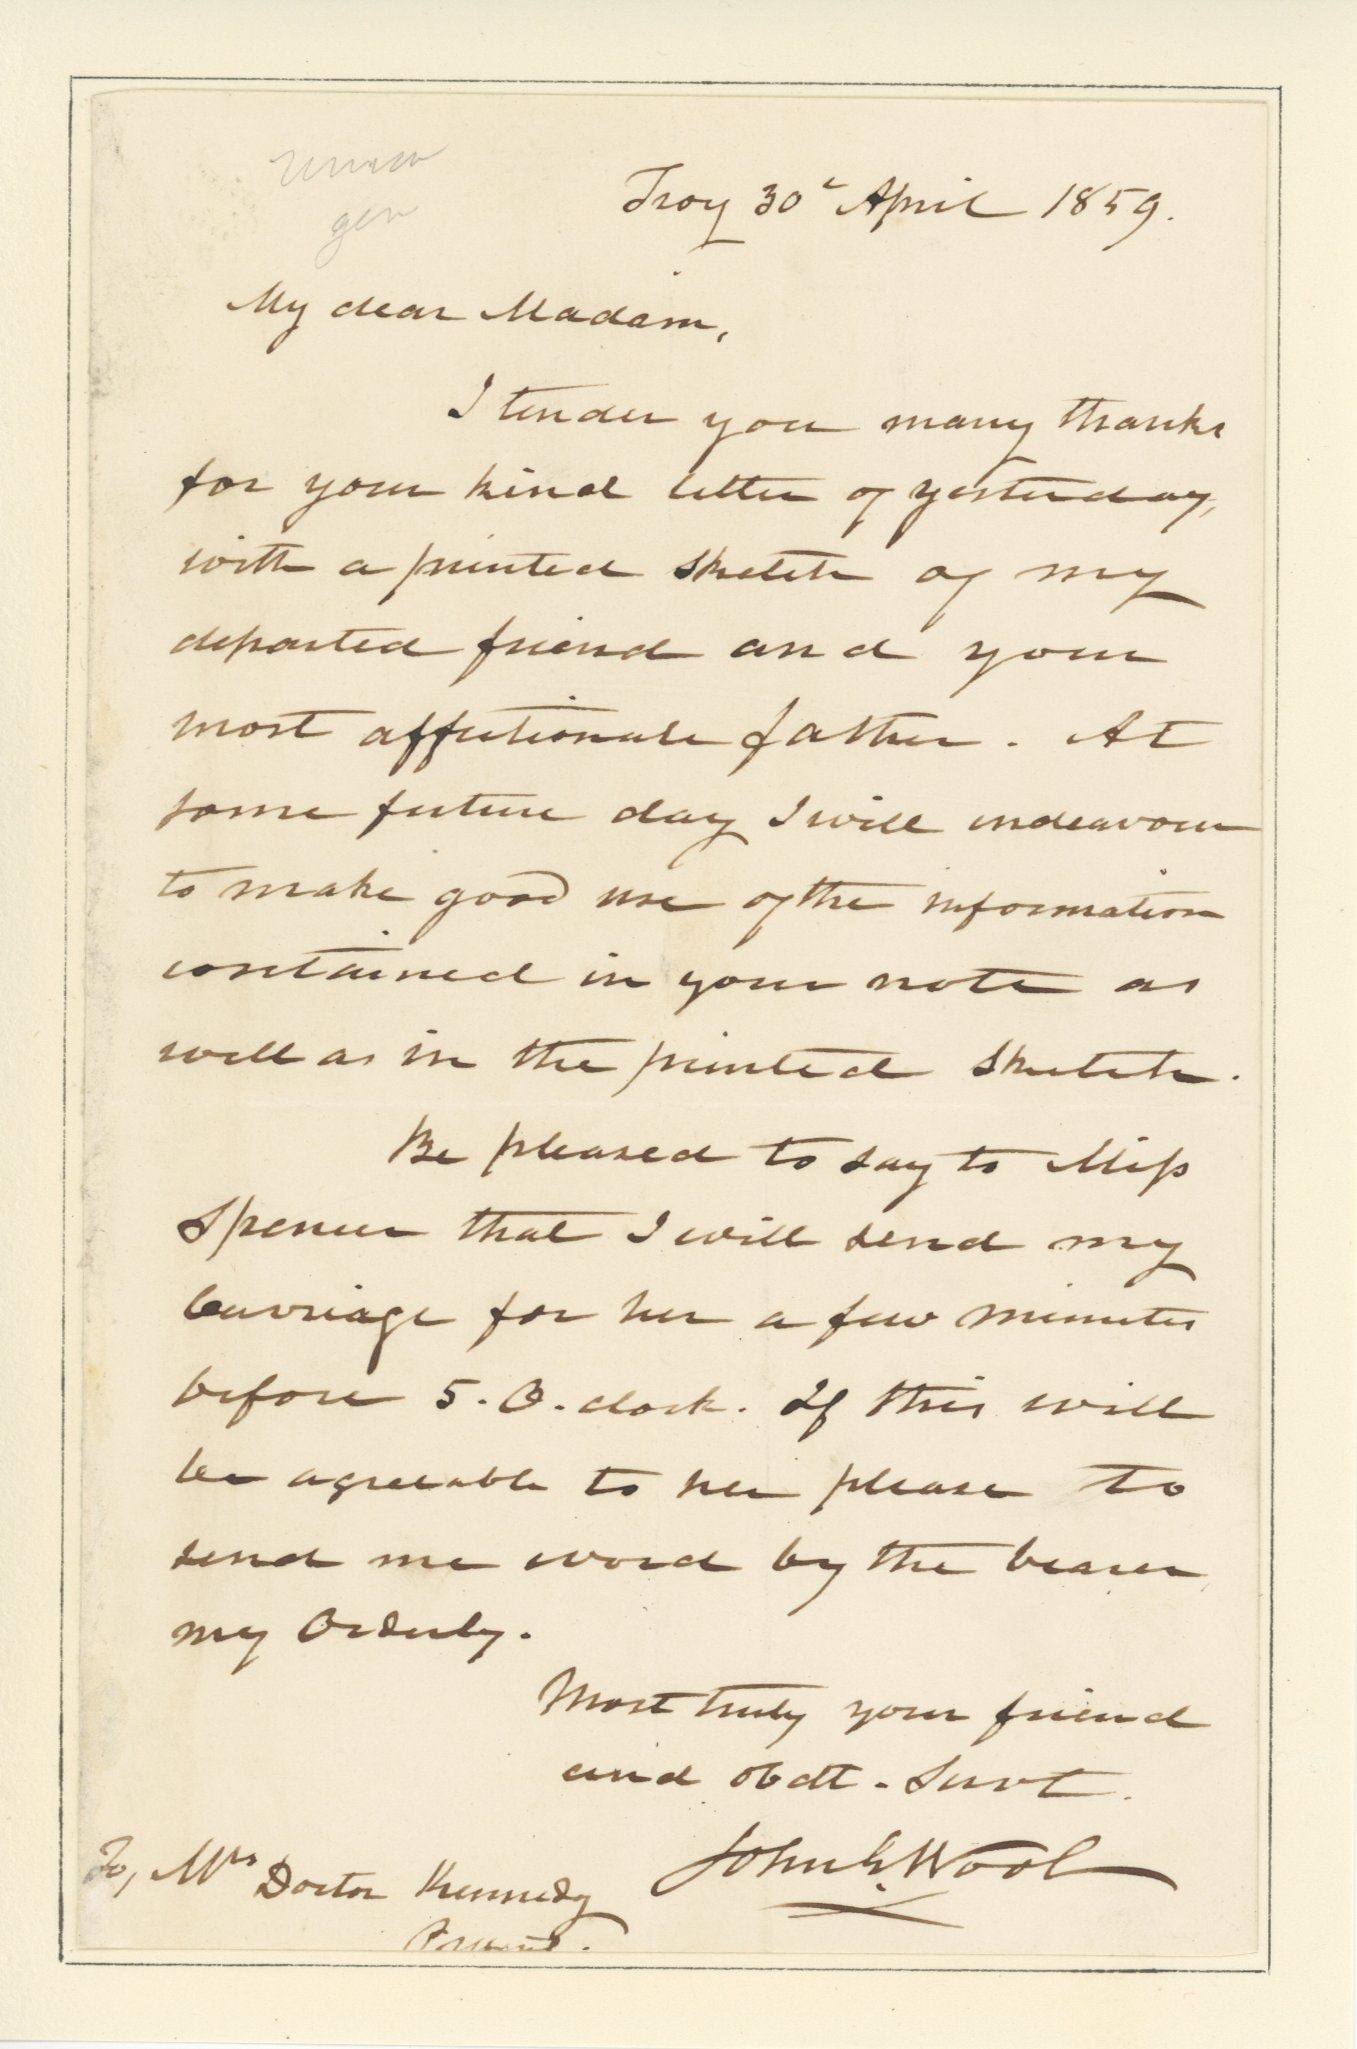 Union
gen
Troy 30th April 1859.
My dear Madam,
I tender you many thanks
for your kind letter of yesterday,
with a printed sketch of my
departed friend and your
most affectionate father. At
some future day I will endeavour
to make good use of the information
contained in your note as
well as in the printed sketch.
Be pleased to say to Miss
Spencer that I will send my
Carriage for her a few minutes
before 5. O. clock. If this will
be agreeable to her please to
send me word by the bearer
my Orderly.
Most truly your friend
and obdt. Servt.
John E. Wool
To, Mrs Doctor Kennedy
Present.